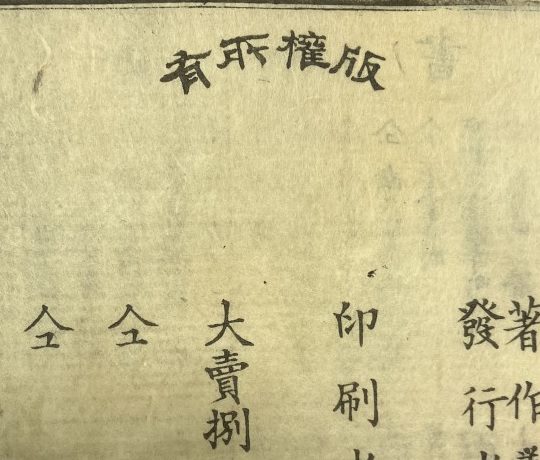 版權所有
著作
發行
印刷
大賣捌
仝
仝